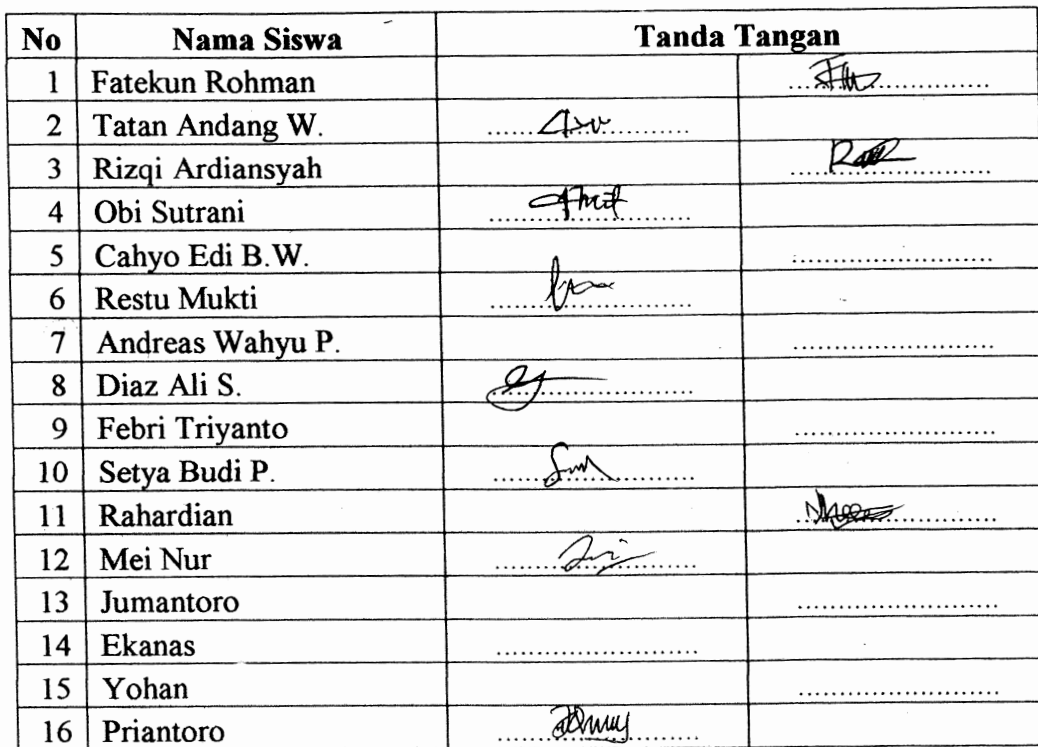 No Nama Siswa Tanda Tangan
1 Fatekun Rohman
2 Tatan Andang W.
3 Rizqi Ardiansyah
4 Obi Sutrani
5 Cahyo Edi B.W.
6 Restu Mukti
7 Andreas Wahyu P.
8 Diaz Ali S.
9 Febri Triyanto
10 Setya Budi P.
11 Rahardian
12 Mei Nur
13 Jumantoro
14 Ekanas
15 Yohan
16 Priantoro